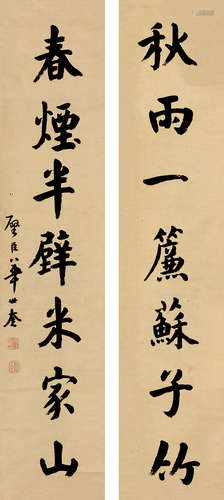 秋雨一簾蘇子竹
春煙半壁米家山
華世奎